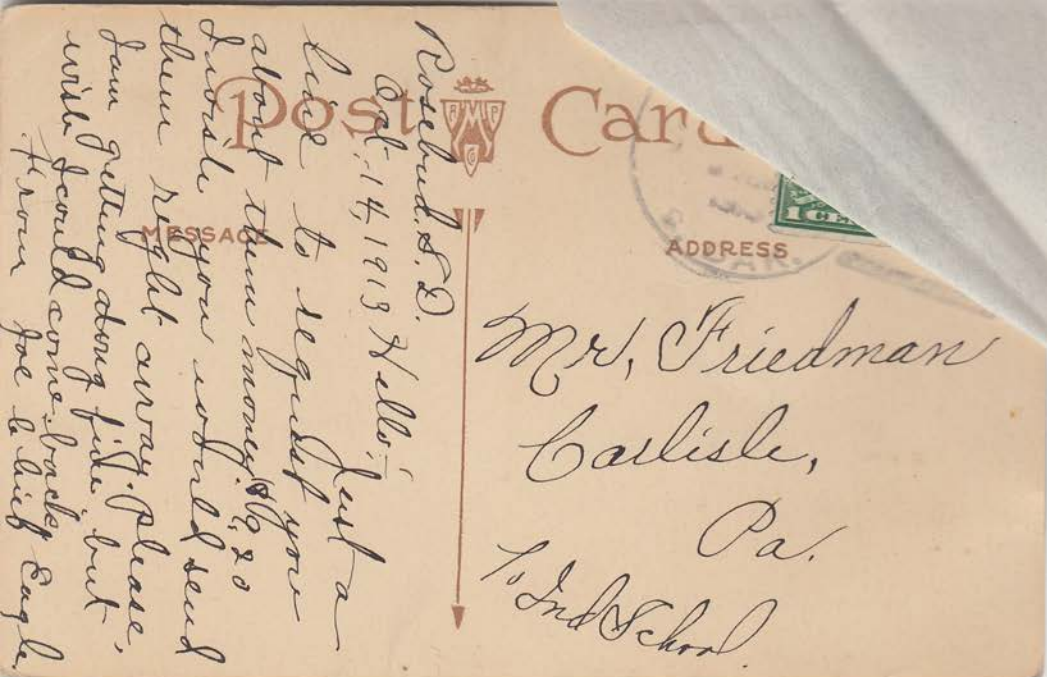 Post Card
MESSAGE
ADDRESS
Rosebud. S. D.
Oct-14, 1913 Hello;- Just a
line to request you
about them money. $9.20
I wish you would send
them right away. Please,
I am getting dong fine, but
wish I could come back,
From Joe Chief Eagle.
1 CE
S. DAK.
Mr, Friedman
Carlisle,
Pa.
Ind School.